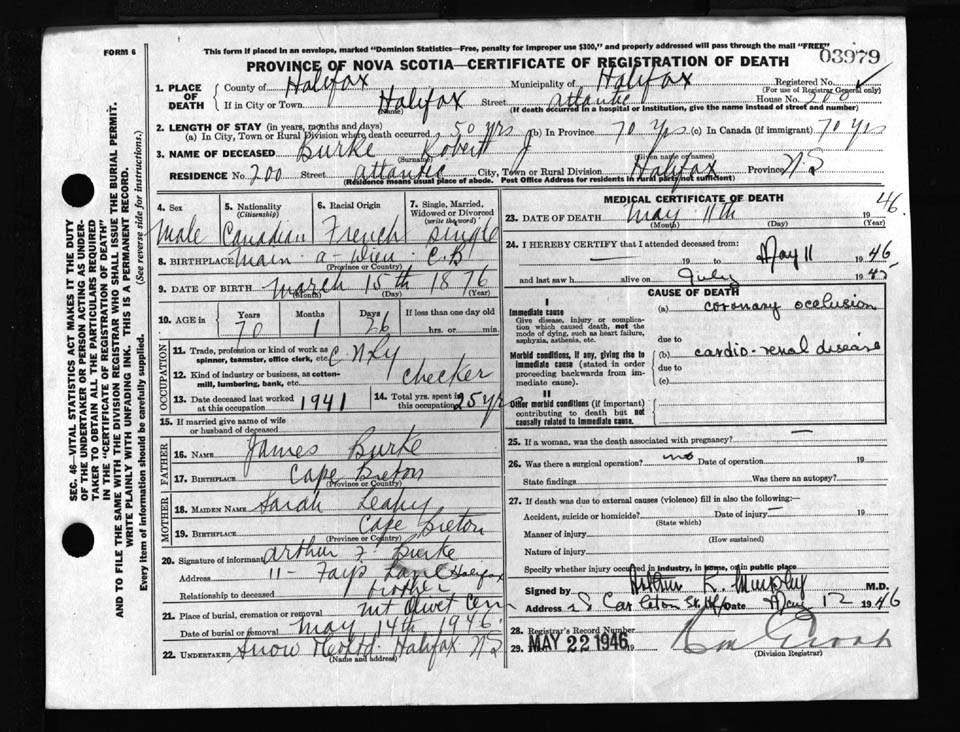 FORM 6
This form if placed in an envelope, marked "Dominion Statistics—Free, penalty for improper use $300," and properly addressed will pass through the mail "FREE"
03979
PROVINCE OF NOVA SCOTIA—CERTIFICATE OF REGISTRATION OF DEATH
1. PLACE OF DEATH
County of Halifax Municipality of Halifax Registered No.
(For use of Registrar General only)
If in City or Town Halifax Street Atlantic House No. 200
(Name) (If death occurred in a hospital or institution, give the name instead of street and number)
2. LENGTH OF STAY (in years, months and days)
(a) In City, Town or Rural Division where death occurred, 50 yrs (b) In Province 70 Yrs (c) In Canada (if immigrant) 70 Yrs
3. NAME OF DECEASED Burke Robert J
(Surname) (Given name or names)
RESIDENCE No. 200 Street Atlantic City, Town or Rural Division Halifax Province N S
(Residence means usual place of abode. Post Office Address for residents in rural parts not sufficient)
4. Sex
Male
5. Nationality
(Citizenship)
Canadian
6. Racial Origin
French
7. Single, Married, Widowed or Divorced
(write the word)
Single
8. BIRTHPLACE Main-a-Dieu C.B
(Province or Country)
9. DATE OF BIRTH March 15th 1876
(Month) (Day) (Year)
10. AGE in
Years Months Days If less than one day old
70 1 26 hrs. or min.
OCCUPATION
11. Trade, profession or kind of work as spinner, teamster, office clerk, etc. C. N Ry
12. Kind of industry or business, as cotton-mill, lumbering, bank, etc. Checker
13. Date deceased last worked at this occupation 1941
14. Total yrs. spent in this occupation 25 yrs
15. If married give name of wife or husband of deceased
FATHER
16. NAME James Burke
17. BIRTHPLACE Cape Breton
(Province or Country)
MOTHER
18. MAIDEN NAME Sarah Leahy
19. BIRTHPLACE Cape Breton
(Province or Country)
20. Signature of informant Arthur F. Burke
Address 11- Lane Halifax
Relationship to deceased brother
21. Place of burial, cremation or removal Mt Olivet Cem
Date of burial or removal May 14th 1946.
22. UNDERTAKER Snow Halifax N S
(Name and address)
MEDICAL CERTIFICATE OF DEATH
23. DATE OF DEATH May 11th 1946.
(Month) (Day) (Year)
24. I HEREBY CERTIFY that I attended deceased from:
— 19 to May 11 1946
and last saw h alive on July 1945
CAUSE OF DEATH
I
Immediate cause
Give disease, injury or complication which caused death, not the mode of dying, such as heart failure, asphyxia, asthenia, etc.
(a) coronary occlusion
due to
Morbid conditions, if any, giving rise to immediate cause (stated in order proceeding backwards from immediate cause).
(b) cardio-renal disease
due to
(c)
II
Other morbid conditions (if important) contributing to death but not causally related to immediate cause.
25. If a woman, was the death associated with pregnancy? —
26. Was there a surgical operation? no Date of operation 19
State findings Was there an autopsy?
27. If death was due to external causes (violence) fill in also the following:—
Accident, suicide or homicide? Date of injury — 19
(State which)
Manner of injury
(How sustained)
Nature of injury
Specify whether injury occurred in industry, in home, or in public place
Signed by Arthur L. Murphy M.D.
Address 28 Carleton St. Hfx Date May 12 1946
28. Registrar's Record Number
29. MAY 22 1946 19
(Division Registrar)
SEC. 46—VITAL STATISTICS ACT MAKES IT THE DUTY
OF THE UNDERTAKER OR PERSON ACTING AS UNDER-
TAKER TO OBTAIN ALL THE PARTICULARS REQUIRED
IN THE "CERTIFICATE OF REGISTRATION OF DEATH"
AND TO FILE THE SAME WITH THE DIVISION REGISTRAR WHO SHALL ISSUE THE BURIAL PERMIT.
WRITE PLAINLY WITH UNFADING INK. THIS IS A PERMANENT RECORD.
Every item of information should be carefully supplied. (See reverse side for instructions.)